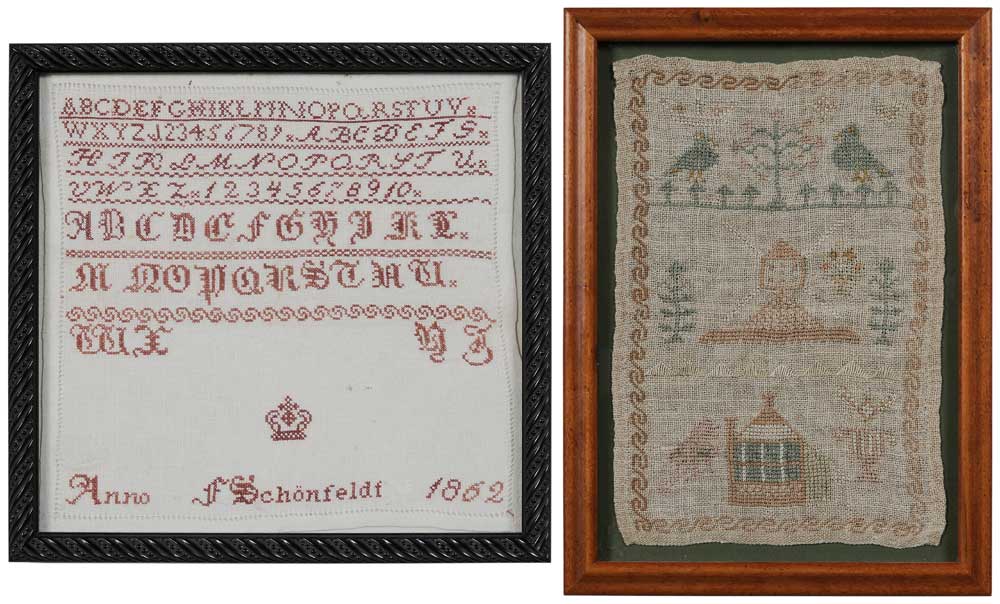 ABCDEFGHIKLMNOPQRSTUV
WXYZ123456789 ABCDEFG
HIKLMNOPQRSTU
VWXZ 12345678910
ABCDEFGHIKL
MNOPQRSTUU
WX YZ
Anno F Schönfeldt 1862